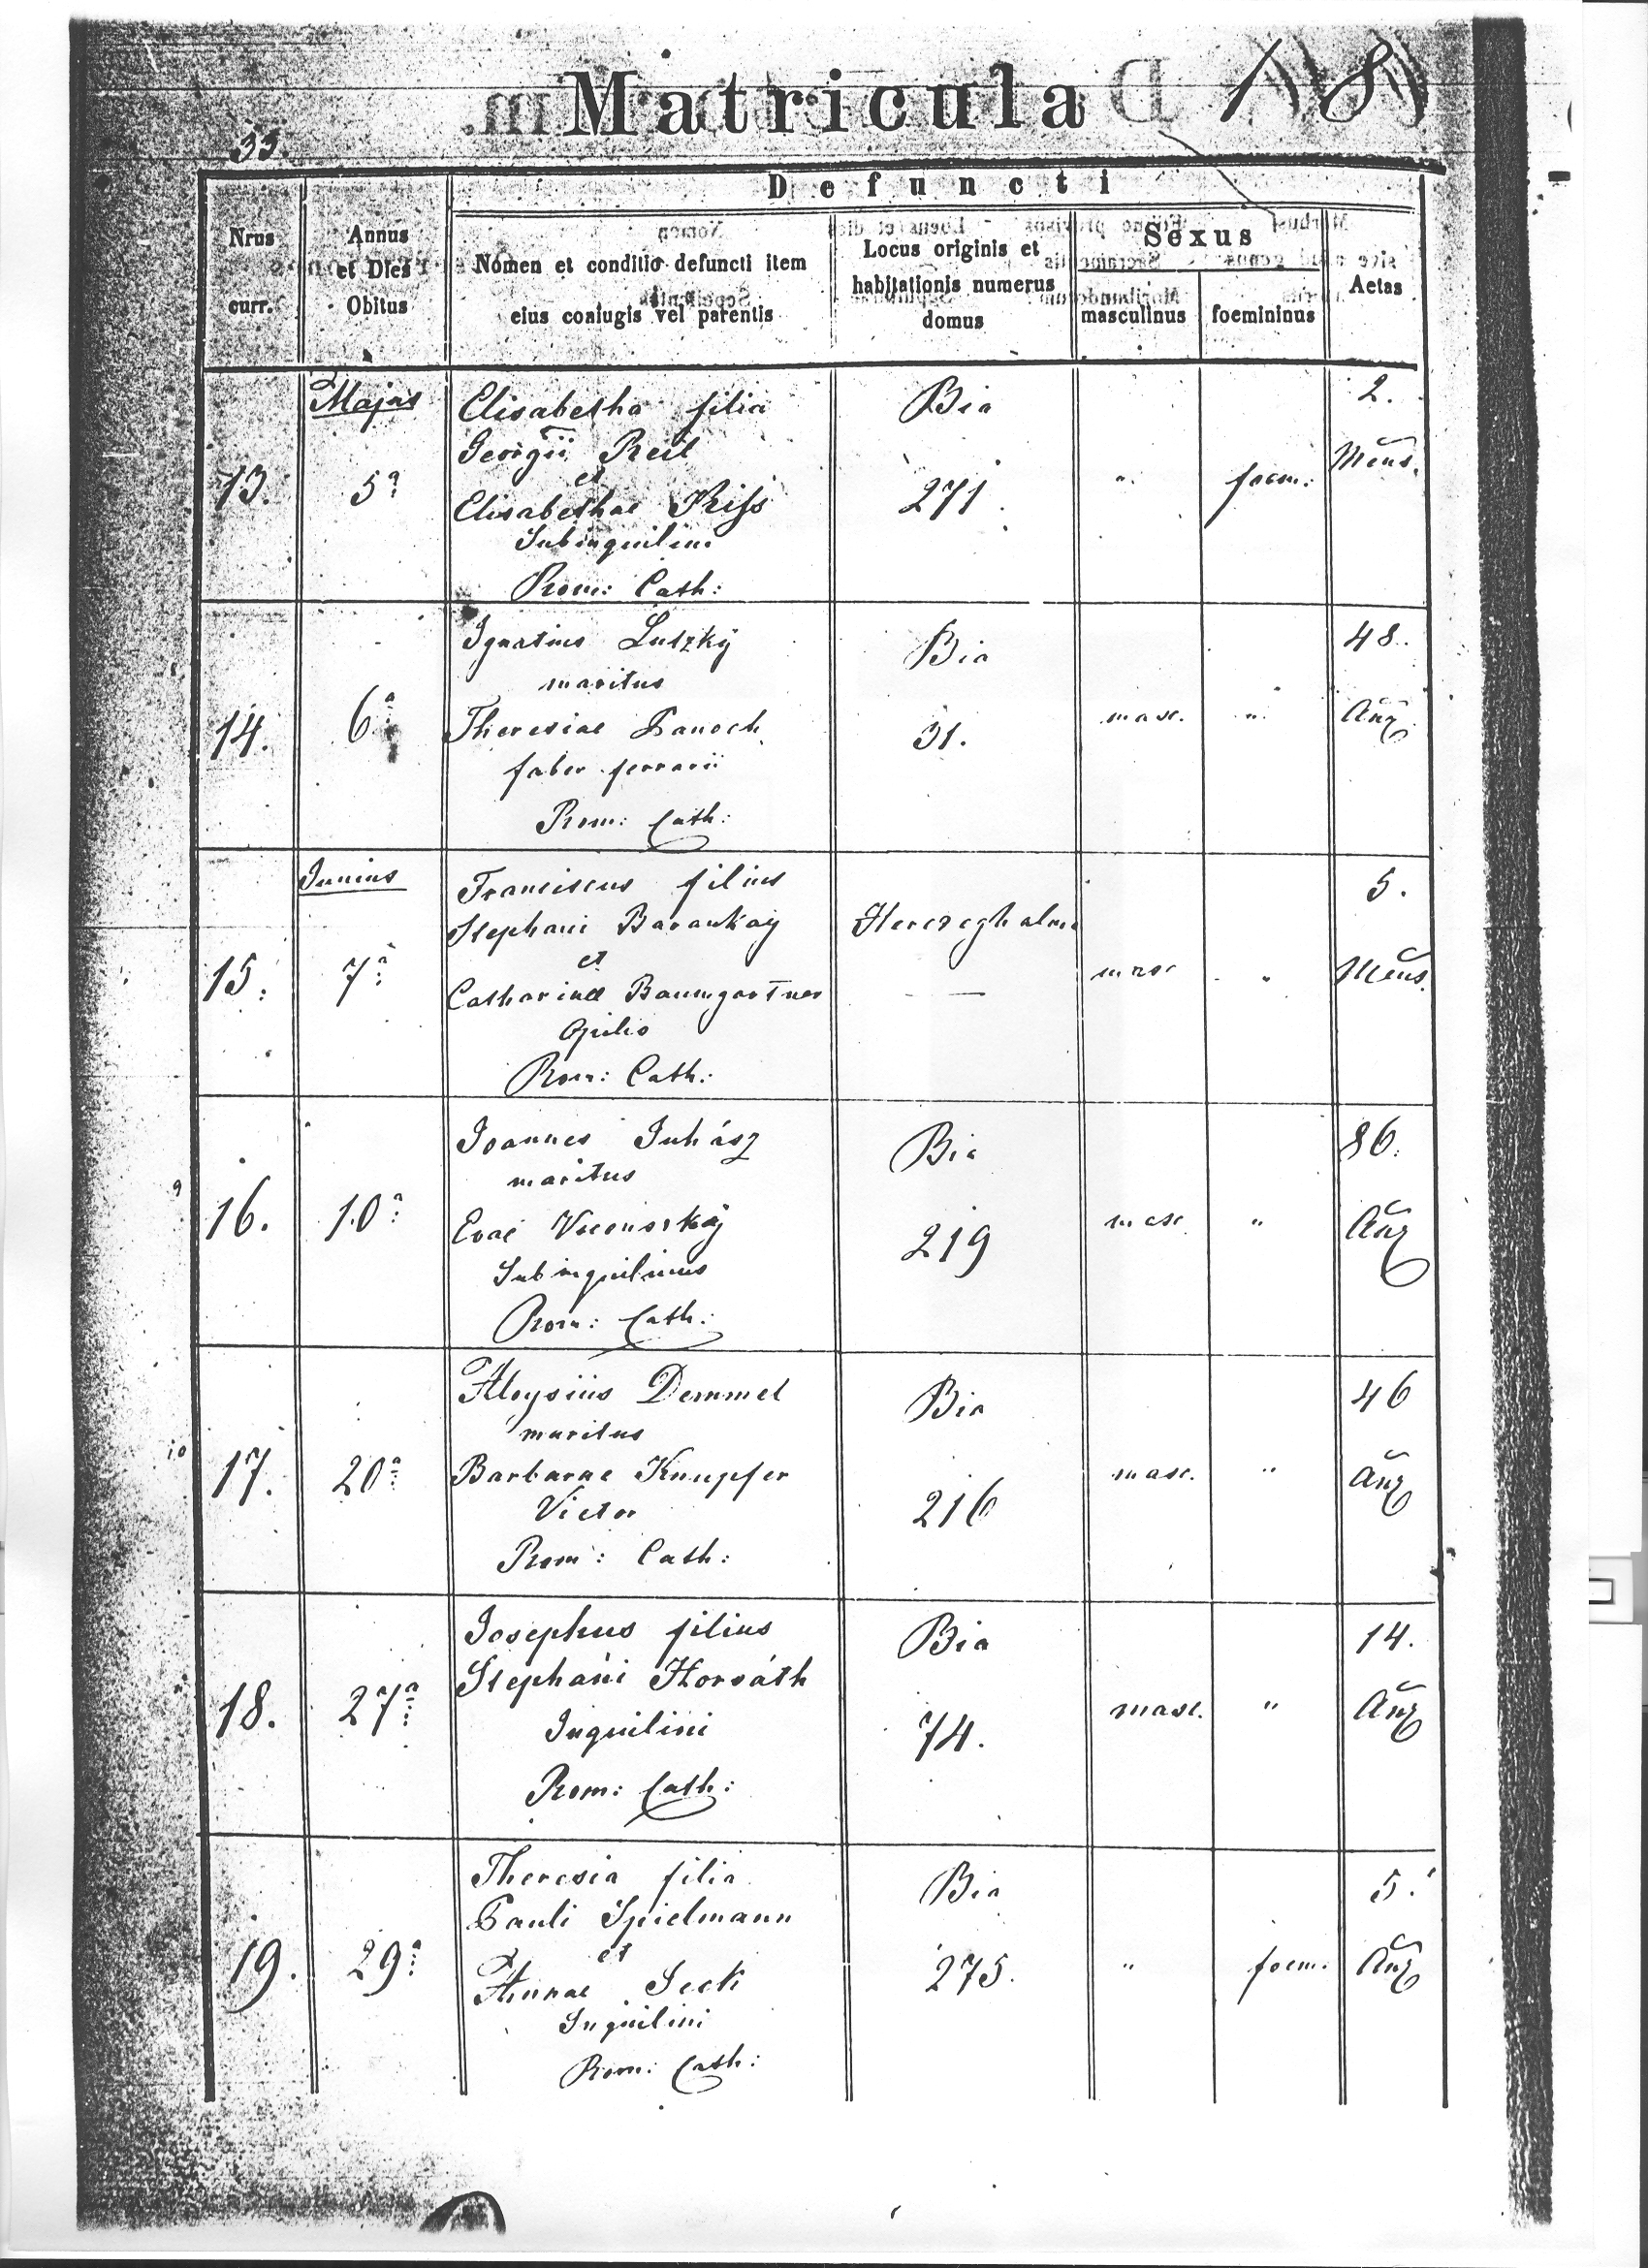 Matricula
33.
Defuncti
Nrus curr.
Annus et Dies Obitus
Nomen et conditio defuncti item eius coniugis vel parentis
Locus originis et habitationis numerus domus
Sexus
masculinus
foemininus
Aetas
Majus
13.
5ª
Elisabetha filia
Georgii Reil
et
Elisabethae Kiss
Subinquilini
Rom: Cath:
Bia
271.
"
foem:
2.
Mens.
14.
6ª
Ignatius Lutzky
maritus
Theresiae Panoch
faber ferrarii
Rom: Cath:
Bia
31.
masc.
"
48.
Ann
Junius
15.
7ª
Franciscus filius
Stephani Barankay
et
Catharinae Baumgartner
Opilio
Rom: Cath:
Herczeghalmi
—
masc
"
5.
Mens.
16.
10ª
Joannes Juhász
maritus
Evae
Subinquilinus
Rom: Cath:
Bia
219
masc
"
86.
Ann
17.
20ª
Aloysius Demmel
maritus
Barbarae Knupfer
Victor
Rom: Cath:
Bia
216
masc.
"
46
Ann
18.
27ª
Josephus filius
Stephani Horváth
Inquilini
Rom: Cath:
Bia
74.
masc.
"
14.
Ann
19.
29ª
Theresia filia
Pauli Spielmann
et
Annae Seck
Inquilini
Rom: Cath:
Bia
275.
"
foem.
5.
Ann